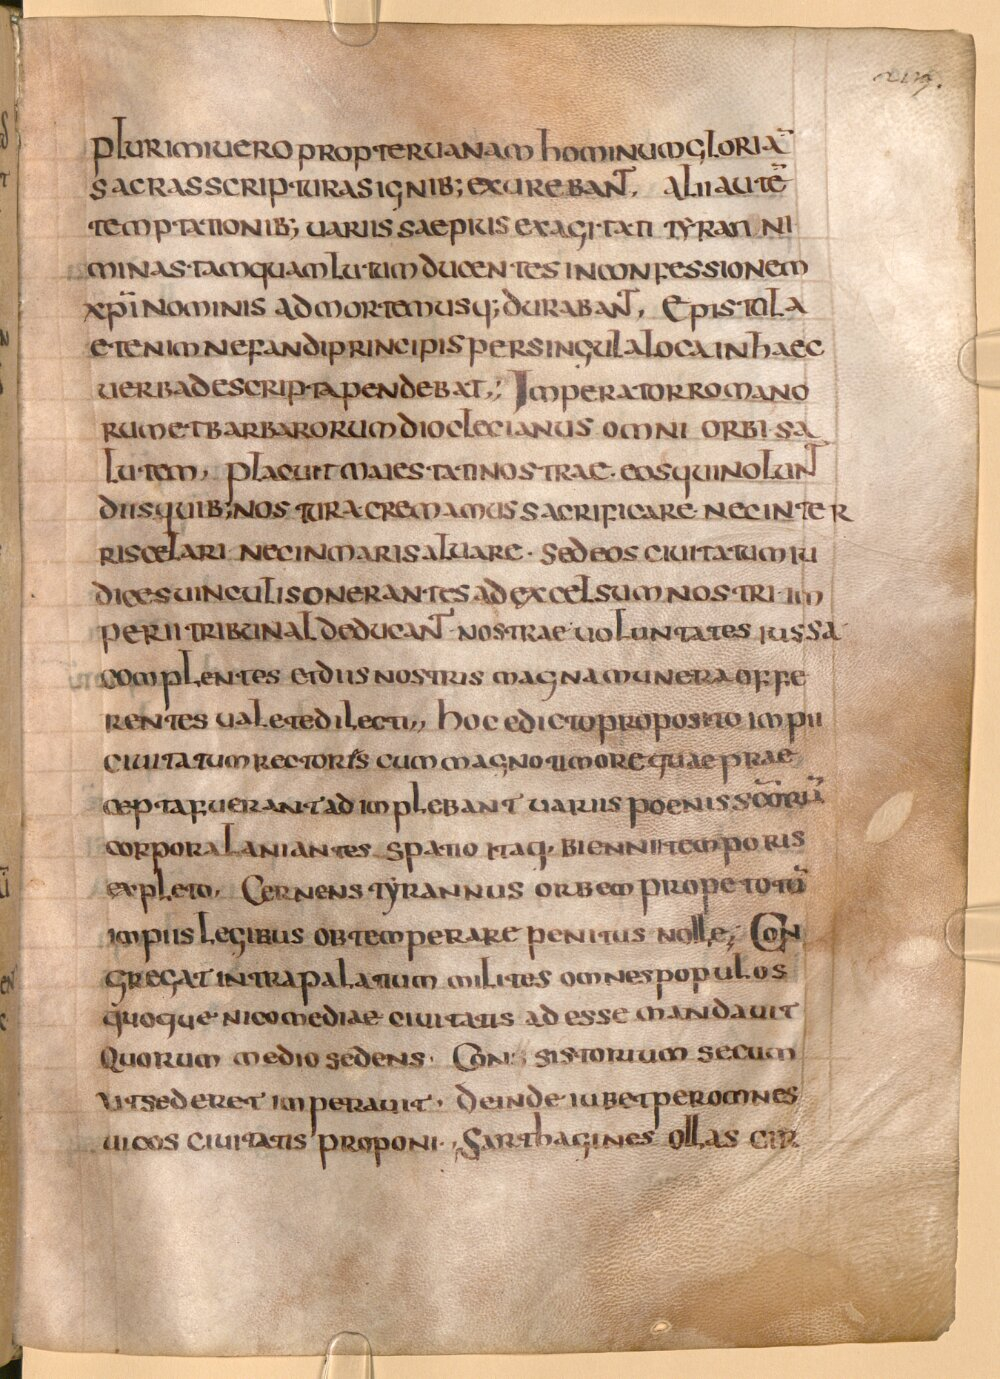 plurimi uero propter uanam hominum gloriā
sacras scripturas ignib; exurebant. alii autē
temptationib; uariis saepius exagitati tyranni
minas tamquam lutum ducentes in confessionem
xp̄i nominis ad mortem usq; durabant, Epistola
etenim nefandi principis per singula loca in haec
uerba descripta pendebat,; Imperator romano
rum et barbarorum dioclecianus omni orbi sa
lutem, placuit maiestati nostrae. eos qui nolunt
diis quib; nos tura cremamus sacrificare nec in ter
ris celari nec in mari saluare. sed eos ciuitatum iu
dices uinculis onerantes ad excelsum nostri im
perii tribunal deducant nostrae uoluntates iussa
complentes et diis nostris magna munera offe
rentes ualete dilecti,, hoc edicto proposito impii
ciuitatum rectoris cum magno timore quae prae
cepta fuerant adimplebant uariis poenis sc̄orū
corpora laniantes. spatio itaq; biennii temporis
expleto, Cernens tyrannus orbem prope totū
impiis legibus obtemperare penitus nolle,; Con
gregat intra palatium milites omnes populos
quoque nicomediae ciuitatis adesse mandauit
quorum medio sedens. Con sistorium secum
ut sederet imperauit. deinde iubet per omnes
uicos ciuitatis proponi., Sarthagines ollas cir